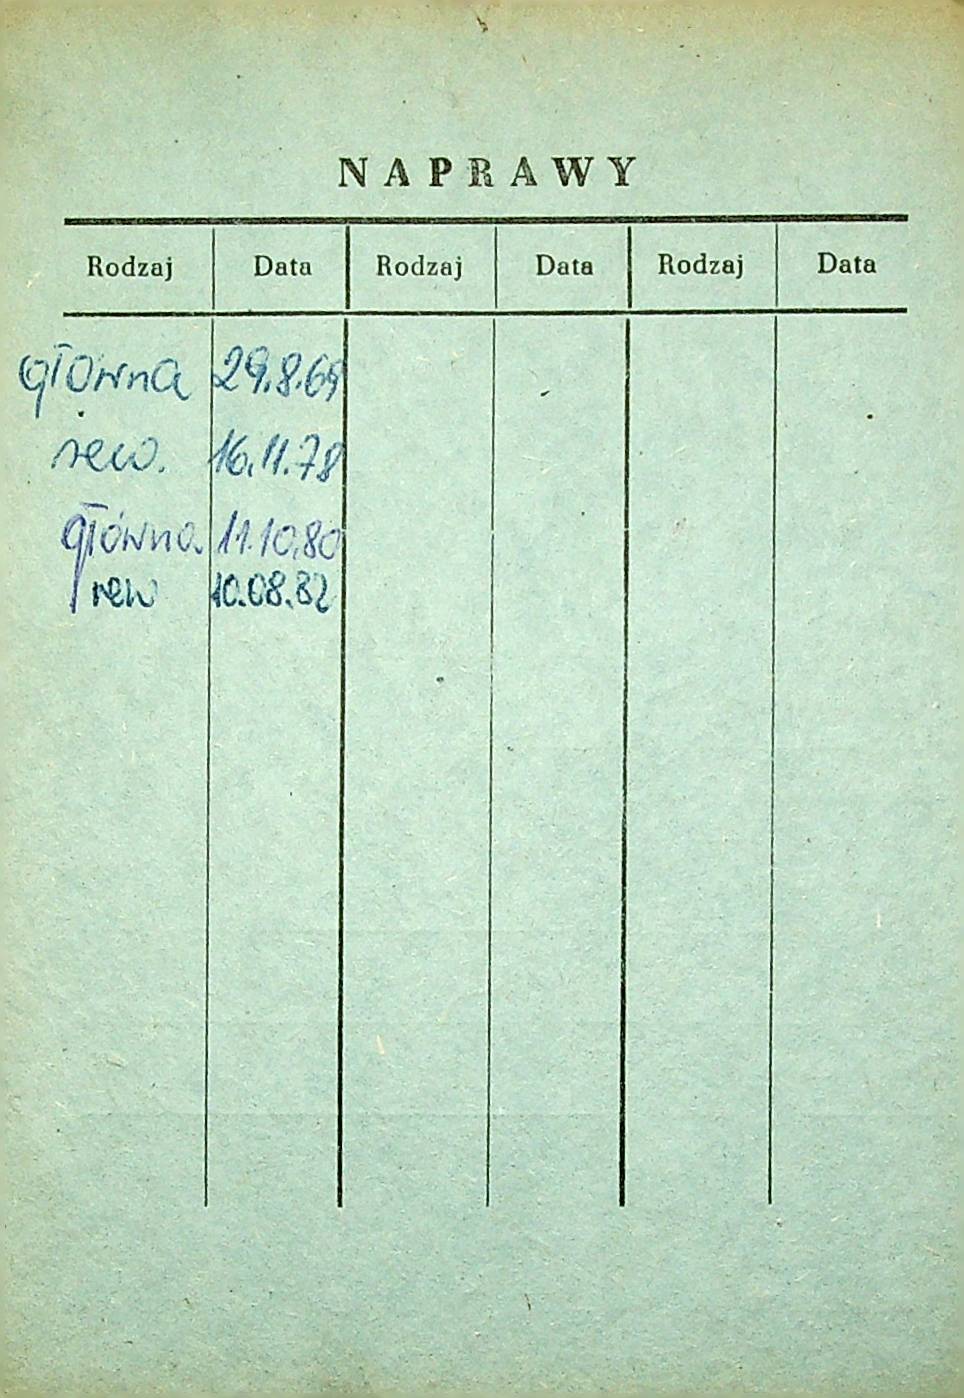 NAPRAWY
Rodzaj Data Rodzaj Data Rodzaj Data
główna 29.8.69
rew. 16.11.78
główna 11.10.80
rew 10.08.82